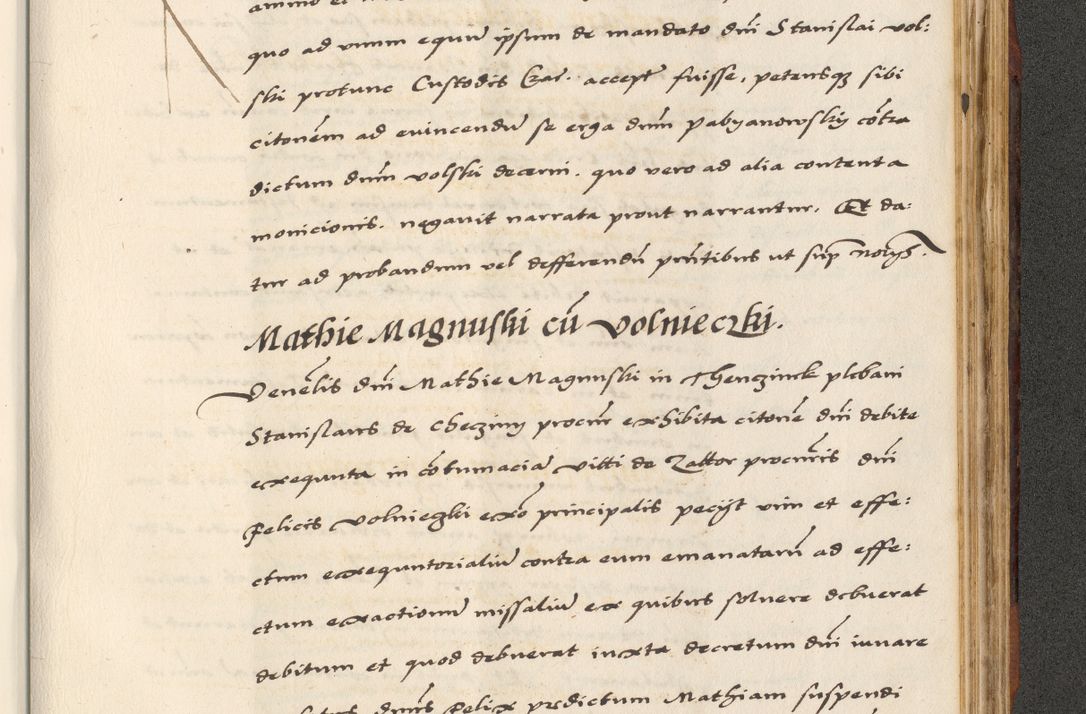 quo ad unum equũ ipsum de mandato dñi Stanislai vol:
ski protunc Custodis Gar. accept fuisse, petensqꝫ sibi
citonẽm ad evincendũ se erga dnm̃ pabyanowskij cõtra
dictum dnm̃ volski decerni. quo vero ad alia contenta
monicionis. negavit narrata prout narrantur. Et da:
tur ad probandum vel defferendũ pñtibus ut sup̃ notarys.
Mathie Magnuski cũ volnieczki.
Venel̃is dñi Mathie Magnuski in Thenczinek plebani
Stanislaus de Checziny procur̃ exhibita citonẽ dñi debite
exequuta in cõtumaciã Vitti de Zattor procur̃is dñi
Felicis volnieghi ex̃o principalis pecijt vim et effe:
ctum exequutorialiũ contra eum emanatarũ ad effe:
ctum exactionũ missaliũ ex quibus solvere debuerat
debitum et quod debuerat iuxta decretum dñi iuvare
dñus Felix prdictum Mathiam suspendi